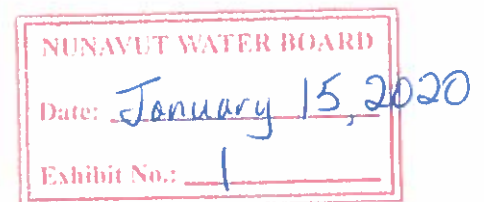 NUNAVUT WATER BOARD
Date: January 15, 2020
Exhibit No.: 1